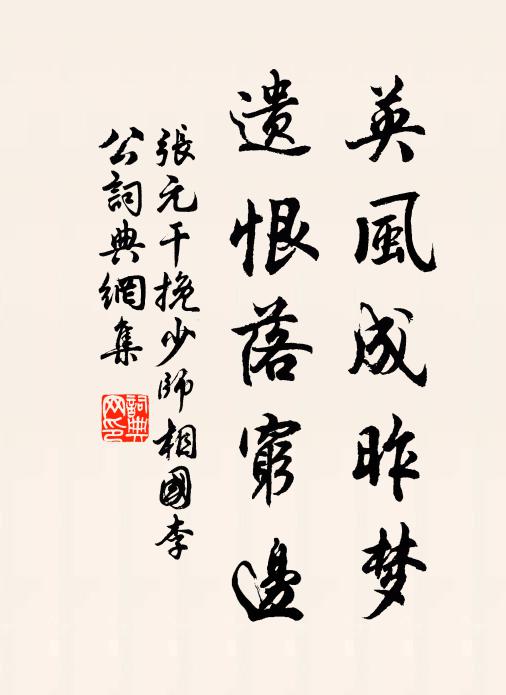 英風成昨梦
遺恨落窮邊
張元干挽少師相國李
公詞典網集
詞典网印